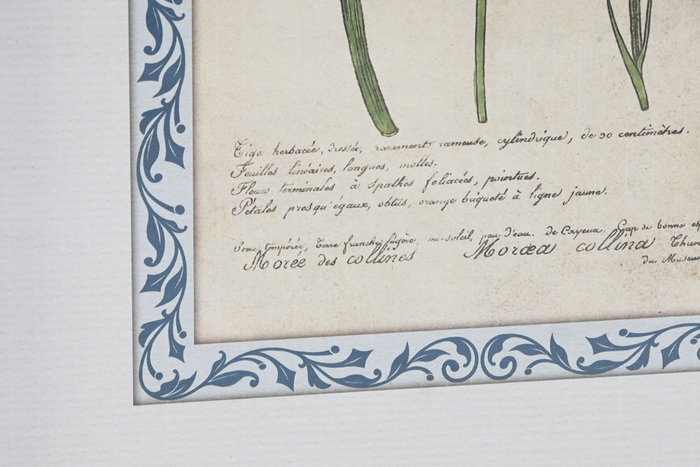 Tige herbacée, dressée, rarement rameuse, cylindrique, de 30 centimètres.
Feuilles linéaires, longues, molles.
Fleurs terminales, à spathes foliacées, pointues.
Pétales presqu'égaux, obtus, orange biqueté à ligne jaune.
Serre tempérée, terre franche légère, mi-soleil, peu d'eau. de Cayeux. Cap de bonne
Morée des collines Moræa collina Thun
du Museum